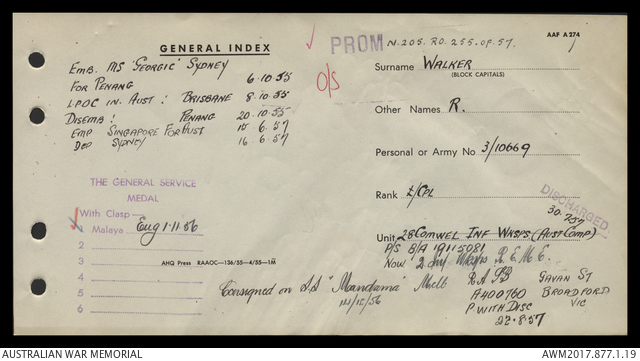 AAF A274
GENERAL INDEX
PROM N.205. RO. 255. OF. 57.
Emb. MS 'Georgic' Sydney
For Penang 6.10.55
LPOC in. Aust: Brisbane 8.10.55
Disemb: Penang 20.10.55
Emp Singapore For Aust 15.6.57
Dep Sydney 16.6.57
O/S
Surname WALKER
(BLOCK CAPITALS)
Other Names R.
Personal or Army No 3/10669
Rank t/Cpl
DISCHARGED
30.7.57
Unit 28 Comwel Inf Wksps (Aust Comp)
P/S B/A 19115081
Now 2 Inf Wksps R.E.M.E.
THE GENERAL SERVICE
MEDAL
With Clasp
1 Malaya Eng 1.11.56
2
3
4
5
6
AHQ Press RAAOC—136/55—4/55—1M
Consigned on S.S "Mandama" Melb
R.A.S.B
A400760
P. With Disc
22.8.57
Gavan St
Broadford
Vic
AUSTRALIAN WAR MEMORIAL
AWM2017.877.1.19